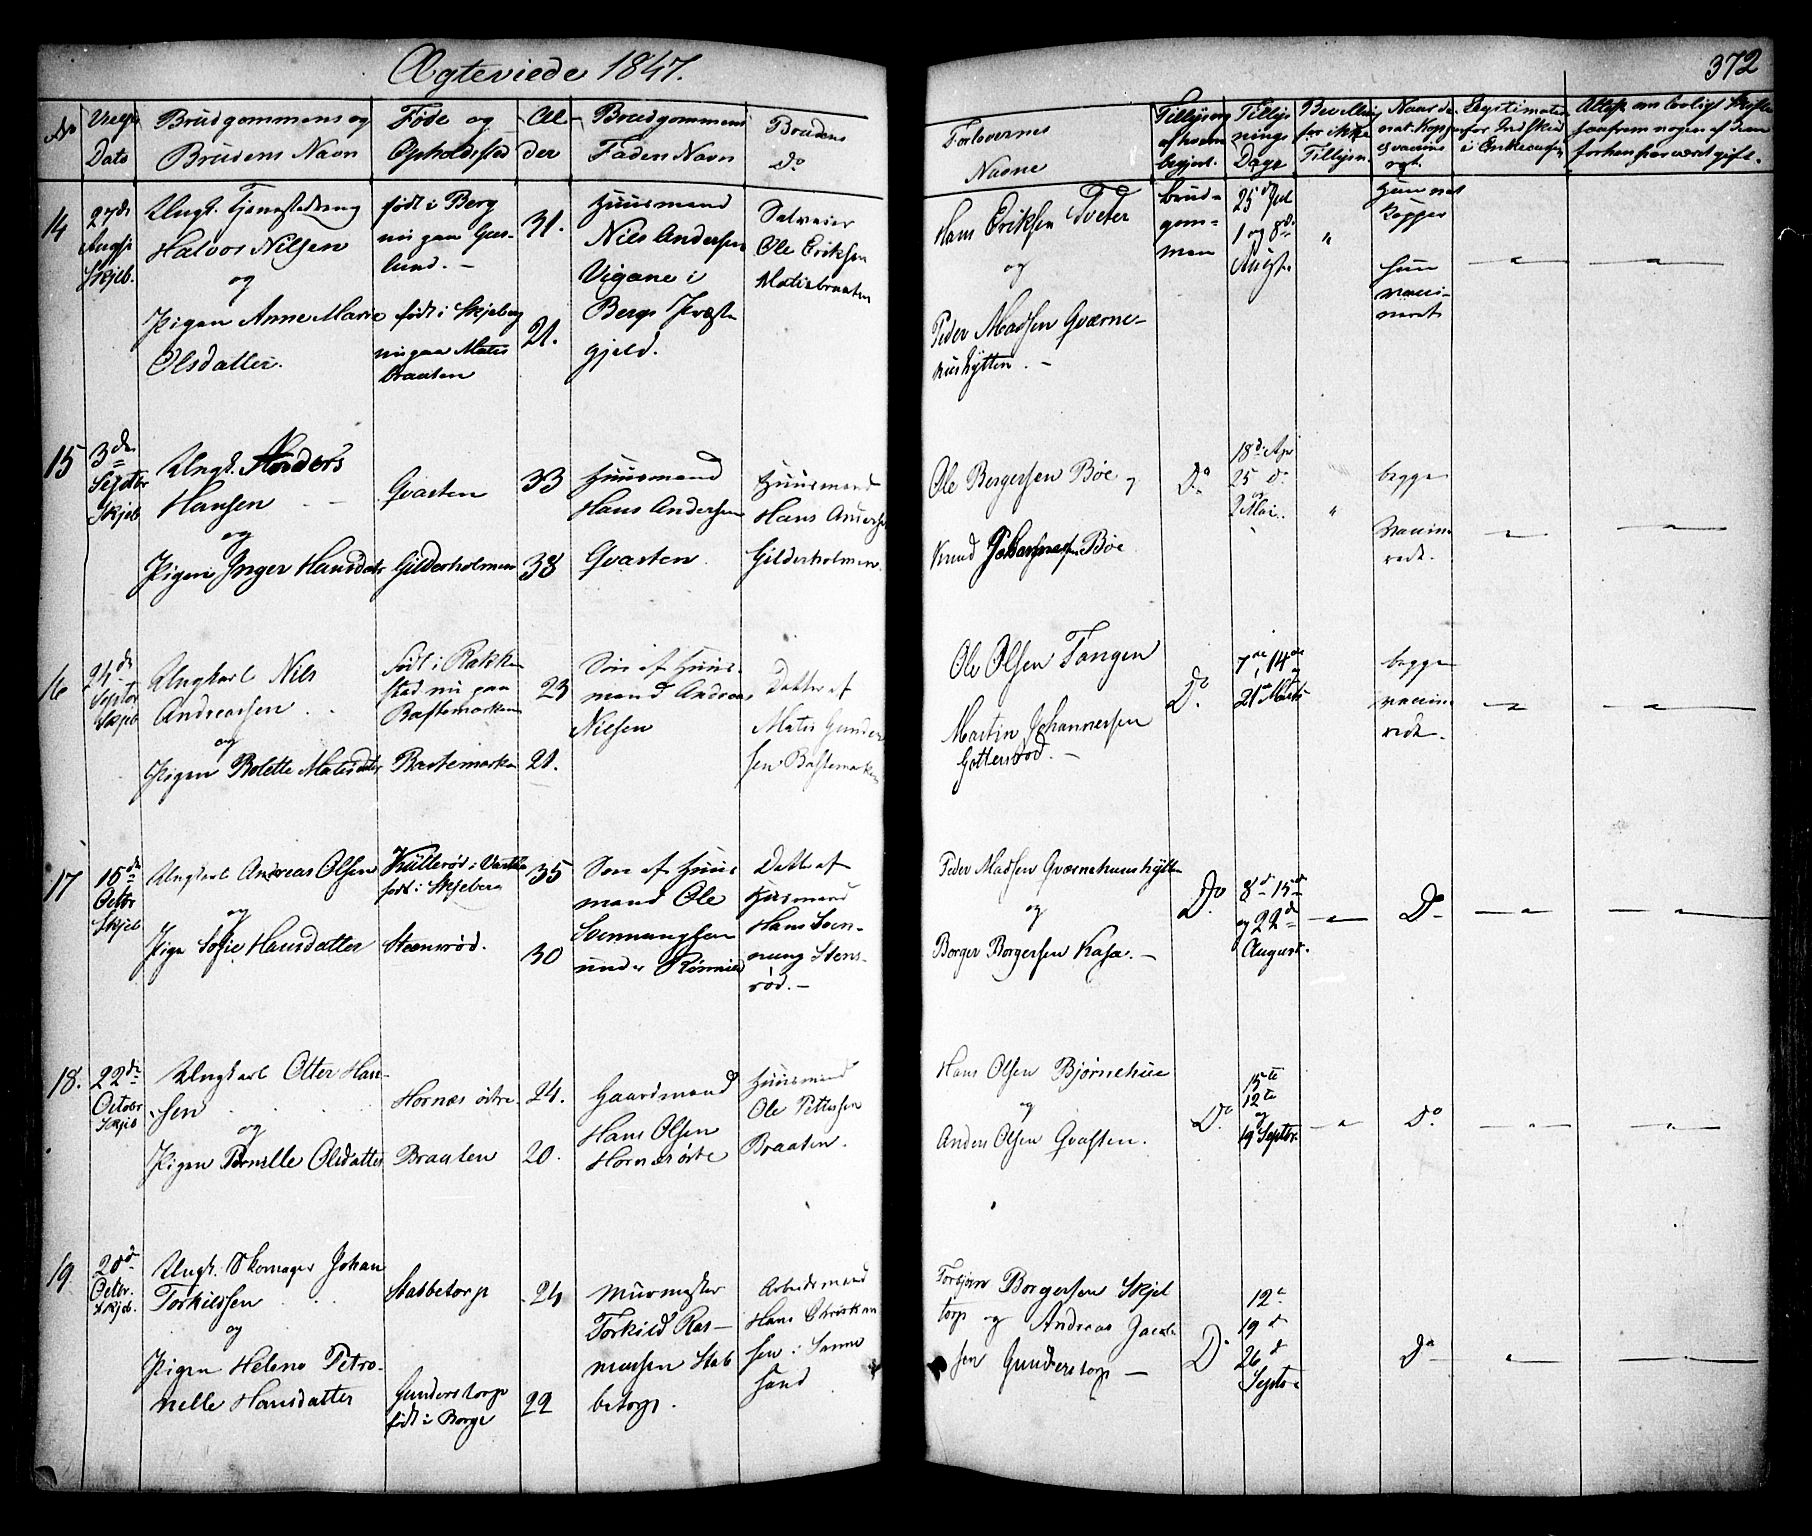 Ægteviede 1847.
372
No
Vielses
Dato
Brudgommens og
Brudens Navn
Føde og
Opholdssted
Al-
der
Brudgommens
Faders Navn
Brudens
Do
Forlovernes
Navne
Tillysning
af hvem
begjert.
Tillys-
nings
Dage
Bevilling
for ikke
Tillysn.
14
27de
August
Skjeb.
Ungk. Tjenestedreng
Halvor Nilsen
og
Pigen Anne Marie
Olsdatter.
født i Berg
nu paa Gus-
lund. -
født i Skjeberg
nu paa Matis
braaten
31.
21.
Huusmand
Nils Andersen
Vigane i
Bergs Præste
gjeld.
Selveier
Ole Eriksen
Matisbraaten
Hans Eriksen Tveter
og
Peder Madsen Qværne-
huushytten. -
brud-
gom-
men
25d Jul
1 og 8de
Augt.
"
Kopper
hun
vacci-
neret
15
3de
Septbr
Skjeb
Ungk. Anders
Hansen
og
Pigen Inger Hansdatr
Qvasten
Gilderholmen
33
38
Huusmand
Hans Andersen
Qvasten.
Huusmand
Hans Anders
Gilderholmen.
Ole Bergersen Bøe og
Knud Johannesen Bøe
Do
18d Apr
25 do
og
2 Mai.
"
begge
vaccine
rede.
16
24de
Septbr
Skjeb
Ungkarl Nils
Andreassen
og
Pigen Bolette Matisdatr
født i Rakke
stad nu paa
Bastemarken
Bastemarken
23
21.
Søn af Huus-
mand Andreas
Nielsen
Datter af
Matis Gunder
sen Bastemarken
Ole Olsen Tangen
og
Martin Johannessen
Gottensrød. -
Do
7de, 14de
21de Marts
begge
vaccine
rede.
17
15de
Octbr
Skjeb
Ungkarl Andreas Olsen
og
Pige Sofie Hansdatter
Kullerød i Vartei
født i Skjeberg
Steensrød.
35
30
Søn af Huus
mand Ole
Svenningsen
under Rømnes
Datter af
Huusmand
Hans Sven-
nung Stens-
rød. -
Peder Madsen Qværnehuushytten
og
Borger Borgersen Kasa. -
Do
8d 15de
og 22d
August.
Do
18.
22de
Octobr
Skjeb
Ungkarl Otter Han-
sen
og
Pigen Pernelle Olsdatter
Hornæs østre
Braaten
24.
20.
Gaardmand
Hans Olsen
Hornæs østre
Huusmand
Ole Pettersen
Braaten.
Hans Olsen Bjørnehue
og
Anders Olsen Qvasten.
Do
15te
12te
og
19 Septbr.
Do
19.
Octbr.
Skjeb.
Ungk. Skomager Johan
Torkildsen
og
Pigen Helene Petro-
nelle Hansdatter
Stabbetorp
Gunderstorp
født i Borge
24
22
Muurmester
Torkild Ras-
mussen Stab
betorp.
Arbeidsmand
Hans Christian
sen i Sanne
sund
Torbjørn Borgersen Skjel
torp og Andreas Jacob-
sen Gunderstorp -
Do
12te
19d
26d
Septbr
Do